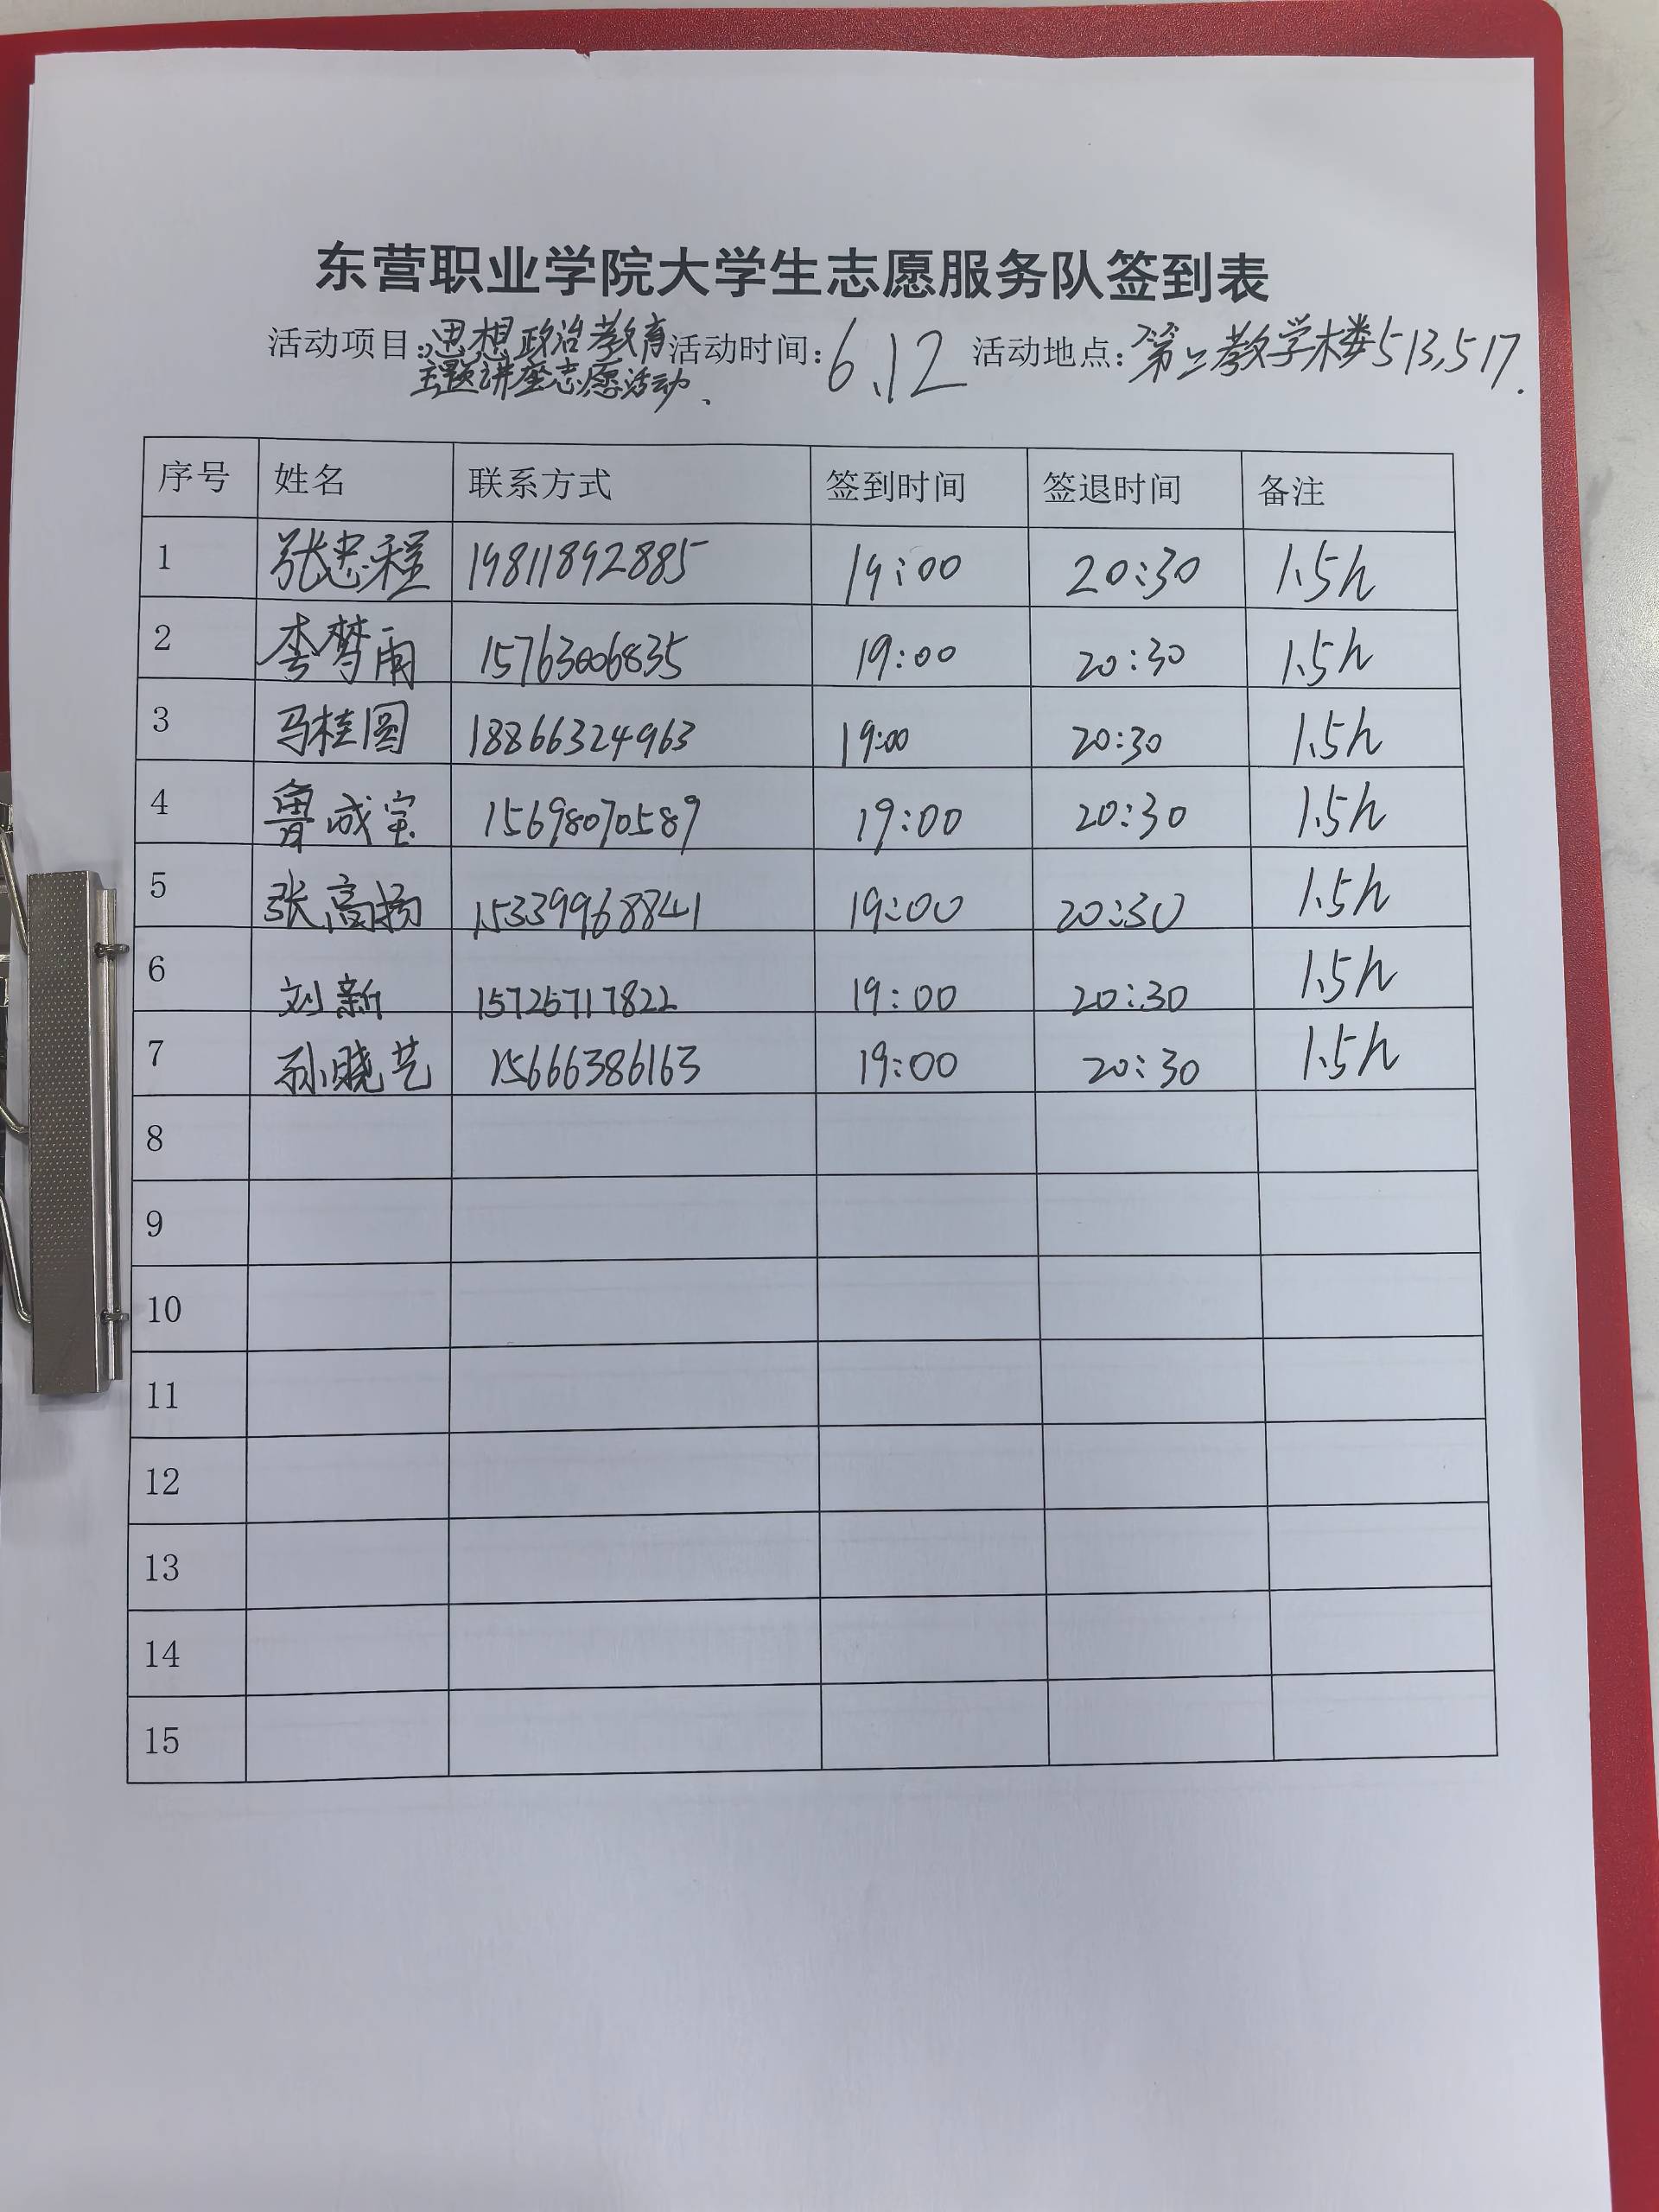 东营职业学院大学生志愿服务队签到表
活动项目:思想政治教育主题讲座志愿活动、 活动时间:6.12 活动地点:第二教学楼513,517.
序号 姓名 联系方式 签到时间 签退时间 备注
1 张忠程 19811892885 19:00 20:30 1.5h
2 李梦雨 15763006835 19:00 20:30 1.5h
3 马桂圆 18866324963 19:00 20:30 1.5h
4 鲁成宝 15698070589 19:00 20:30 1.5h
5 张高扬 15339968841 19:00 20:30 1.5h
6 刘新 15725717822 19:00 20:30 1.5h
7 孙晓艺 15666386163 19:00 20:30 1.5h
8
9
10
11
12
13
14
15